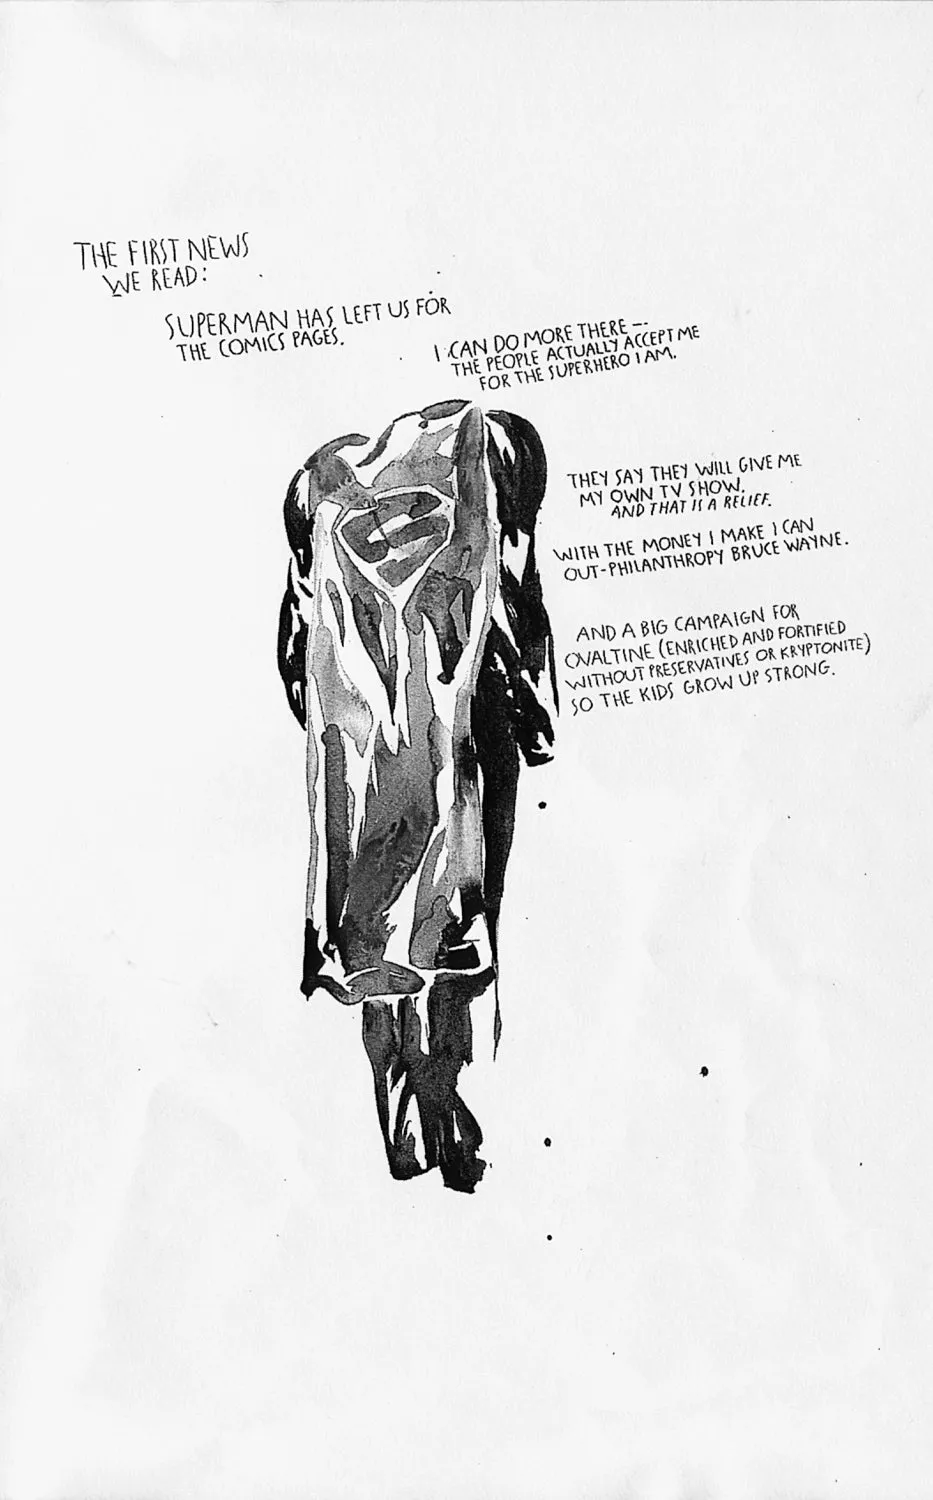 THE FIRST NEWS
WE READ:
SUPERMAN HAS LEFT US FOR
THE COMICS PAGES.
I CAN DO MORE THERE —
THE PEOPLE ACTUALLY ACCEPT ME
FOR THE SUPERHERO I AM.
THEY SAY THEY WILL GIVE ME
MY OWN TV SHOW.
AND THAT IS A RELIEF.
WITH THE MONEY I MAKE I CAN
OUT-PHILANTHROPY BRUCE WAYNE.
AND A BIG CAMPAIGN FOR
OVALTINE (ENRICHED AND FORTIFIED
WITHOUT PRESERVATIVES OR KRYPTONITE)
SO THE KIDS GROW UP STRONG.